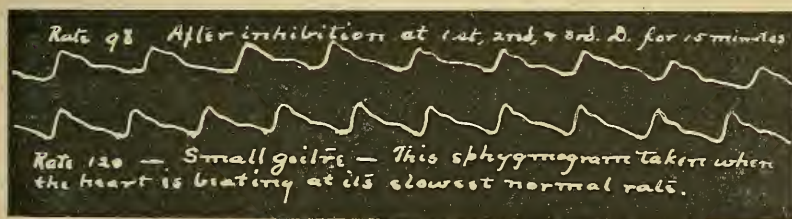 Rate 98 After inhibition at 1st, 2nd, & 3rd. D. for 15 minutes
Rate 120 — Small goitre — This sphygmogram taken when
the heart is beating at its slowest normal rate.